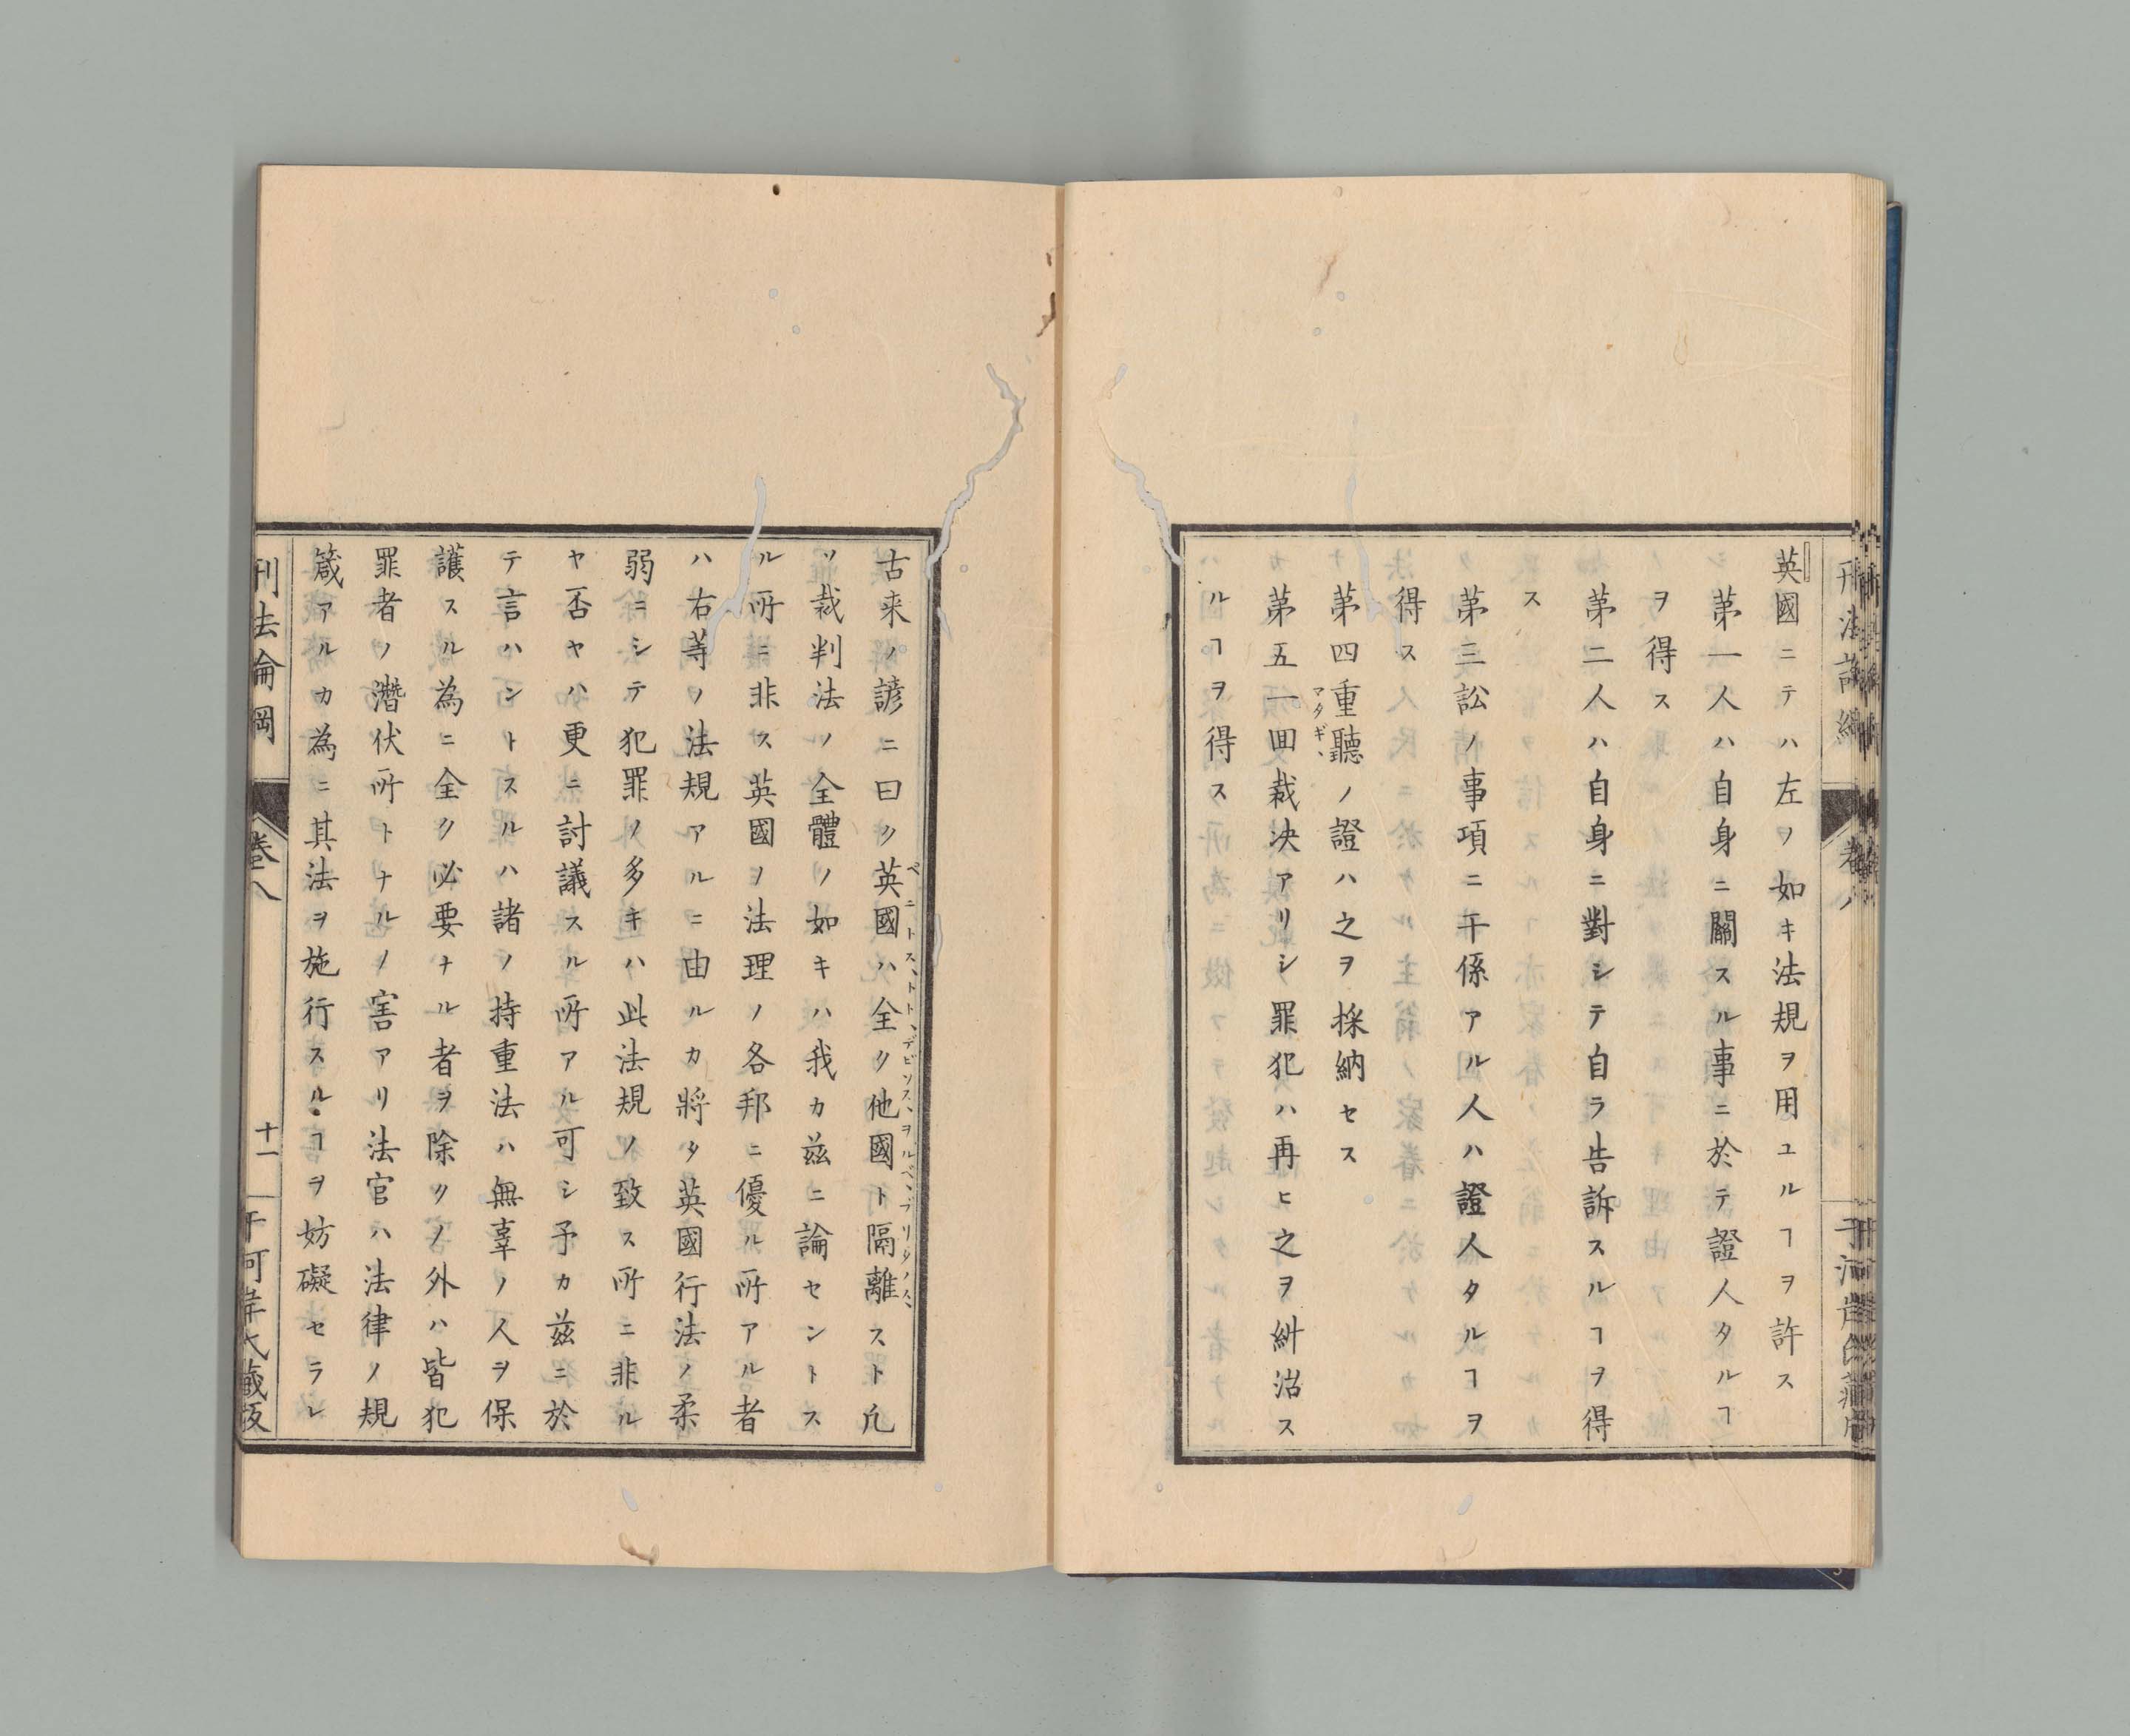 英國ニテハ左ヲ如キ法規ヲ用ユルヿヲ許ス
第一人ハ自身ニ關スル事ニ於テ證人タルヿ
ヲ得ス
第二人ハ自身ニ對シテ自ラ告訴スルヿヲ得
ス
第三訟ノ事項ニ干係アル人ハ證人タルヿヲ
得ス
第四重聽ノ證ハ之ヲ採納セス
マタギヽ
第五一回裁决アリシ罪犯ハ再ヒ之ヲ糾治ス
ルヿヲ得ス
古来ノ諺ニ曰ク英國ハ全ク他國ト隔離スト凢
ソ裁判法ノ全體ノ如キハ我カ兹ニ論セントス
ル所ニ非ス英國ノ法理ノ各邦ニ優ル所アル者
ハ右等ノ法規アルニ由ルカ將タ英國行法ノ柔
弱ニシテ犯罪ノ多キハ此法規ノ致ス所ニ非ル
ヤ否ヤハ更ニ討議スル所アル可シ予カ兹ニ於
テ言ハントスルハ諸ノ持重法ハ無辜ノ人ヲ保
護スル為ニ全ク必要ナル者ヲ除クノ外ハ皆犯
罪者ノ潜伏所トナルノ害アリ法官ハ法律ノ規
箴アルカ為ニ其法ヲ施行スルヿヲ妨礙セラレ
刑法論綱
卷八
十一